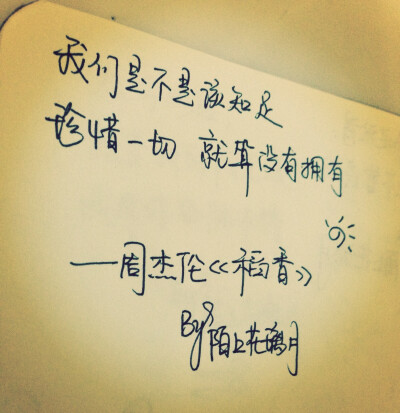 我们是不是该知足
珍惜一切 就算没有拥有
——周杰伦《稻香》
By 陌上花漓月